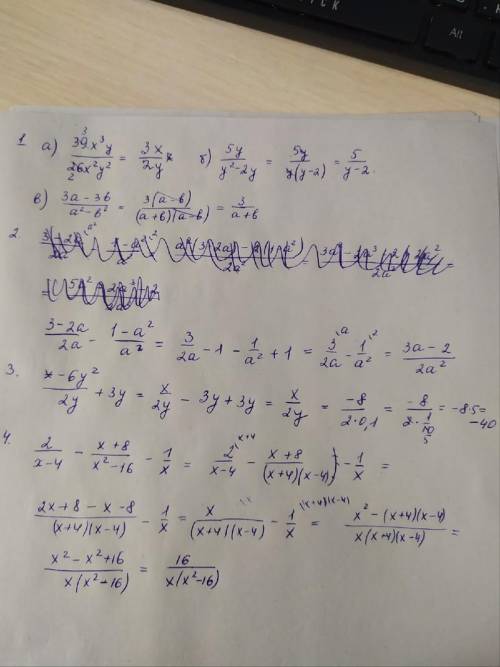 1 а) 39x³y/26x²y² = 3x/2y б) 5y/y²-2y = 5y/y(y-2) = 5/y-2.
в) 3a-3b/a²-b² = 3(a-b)/(a+b)(a-b) = 3/a+b
2.
3-2a/2a - 1-a²/a² = 3/2a - 1 - 1/a² + 1 = 3/2a - 1/a² = 3a-2/2a²
3. x-6y²/2y + 3y = x/2y - 3y + 3y = x/2y = -8/2·0,1 = -8/2·1/10 = -8·5= -40
4. 2/x-4 - x+8/x²-16 - 1/x = 2/x-4 - x+8/(x+4)(x-4) - 1/x =
2x+8-x-8/(x+4)(x-4) - 1/x = x/(x+4)(x-4) - 1/x = x²-(x+4)(x-4)/x(x+4)(x-4) =
x²-x²+16/x(x²-16) = 16/x(x²-16)
Alt